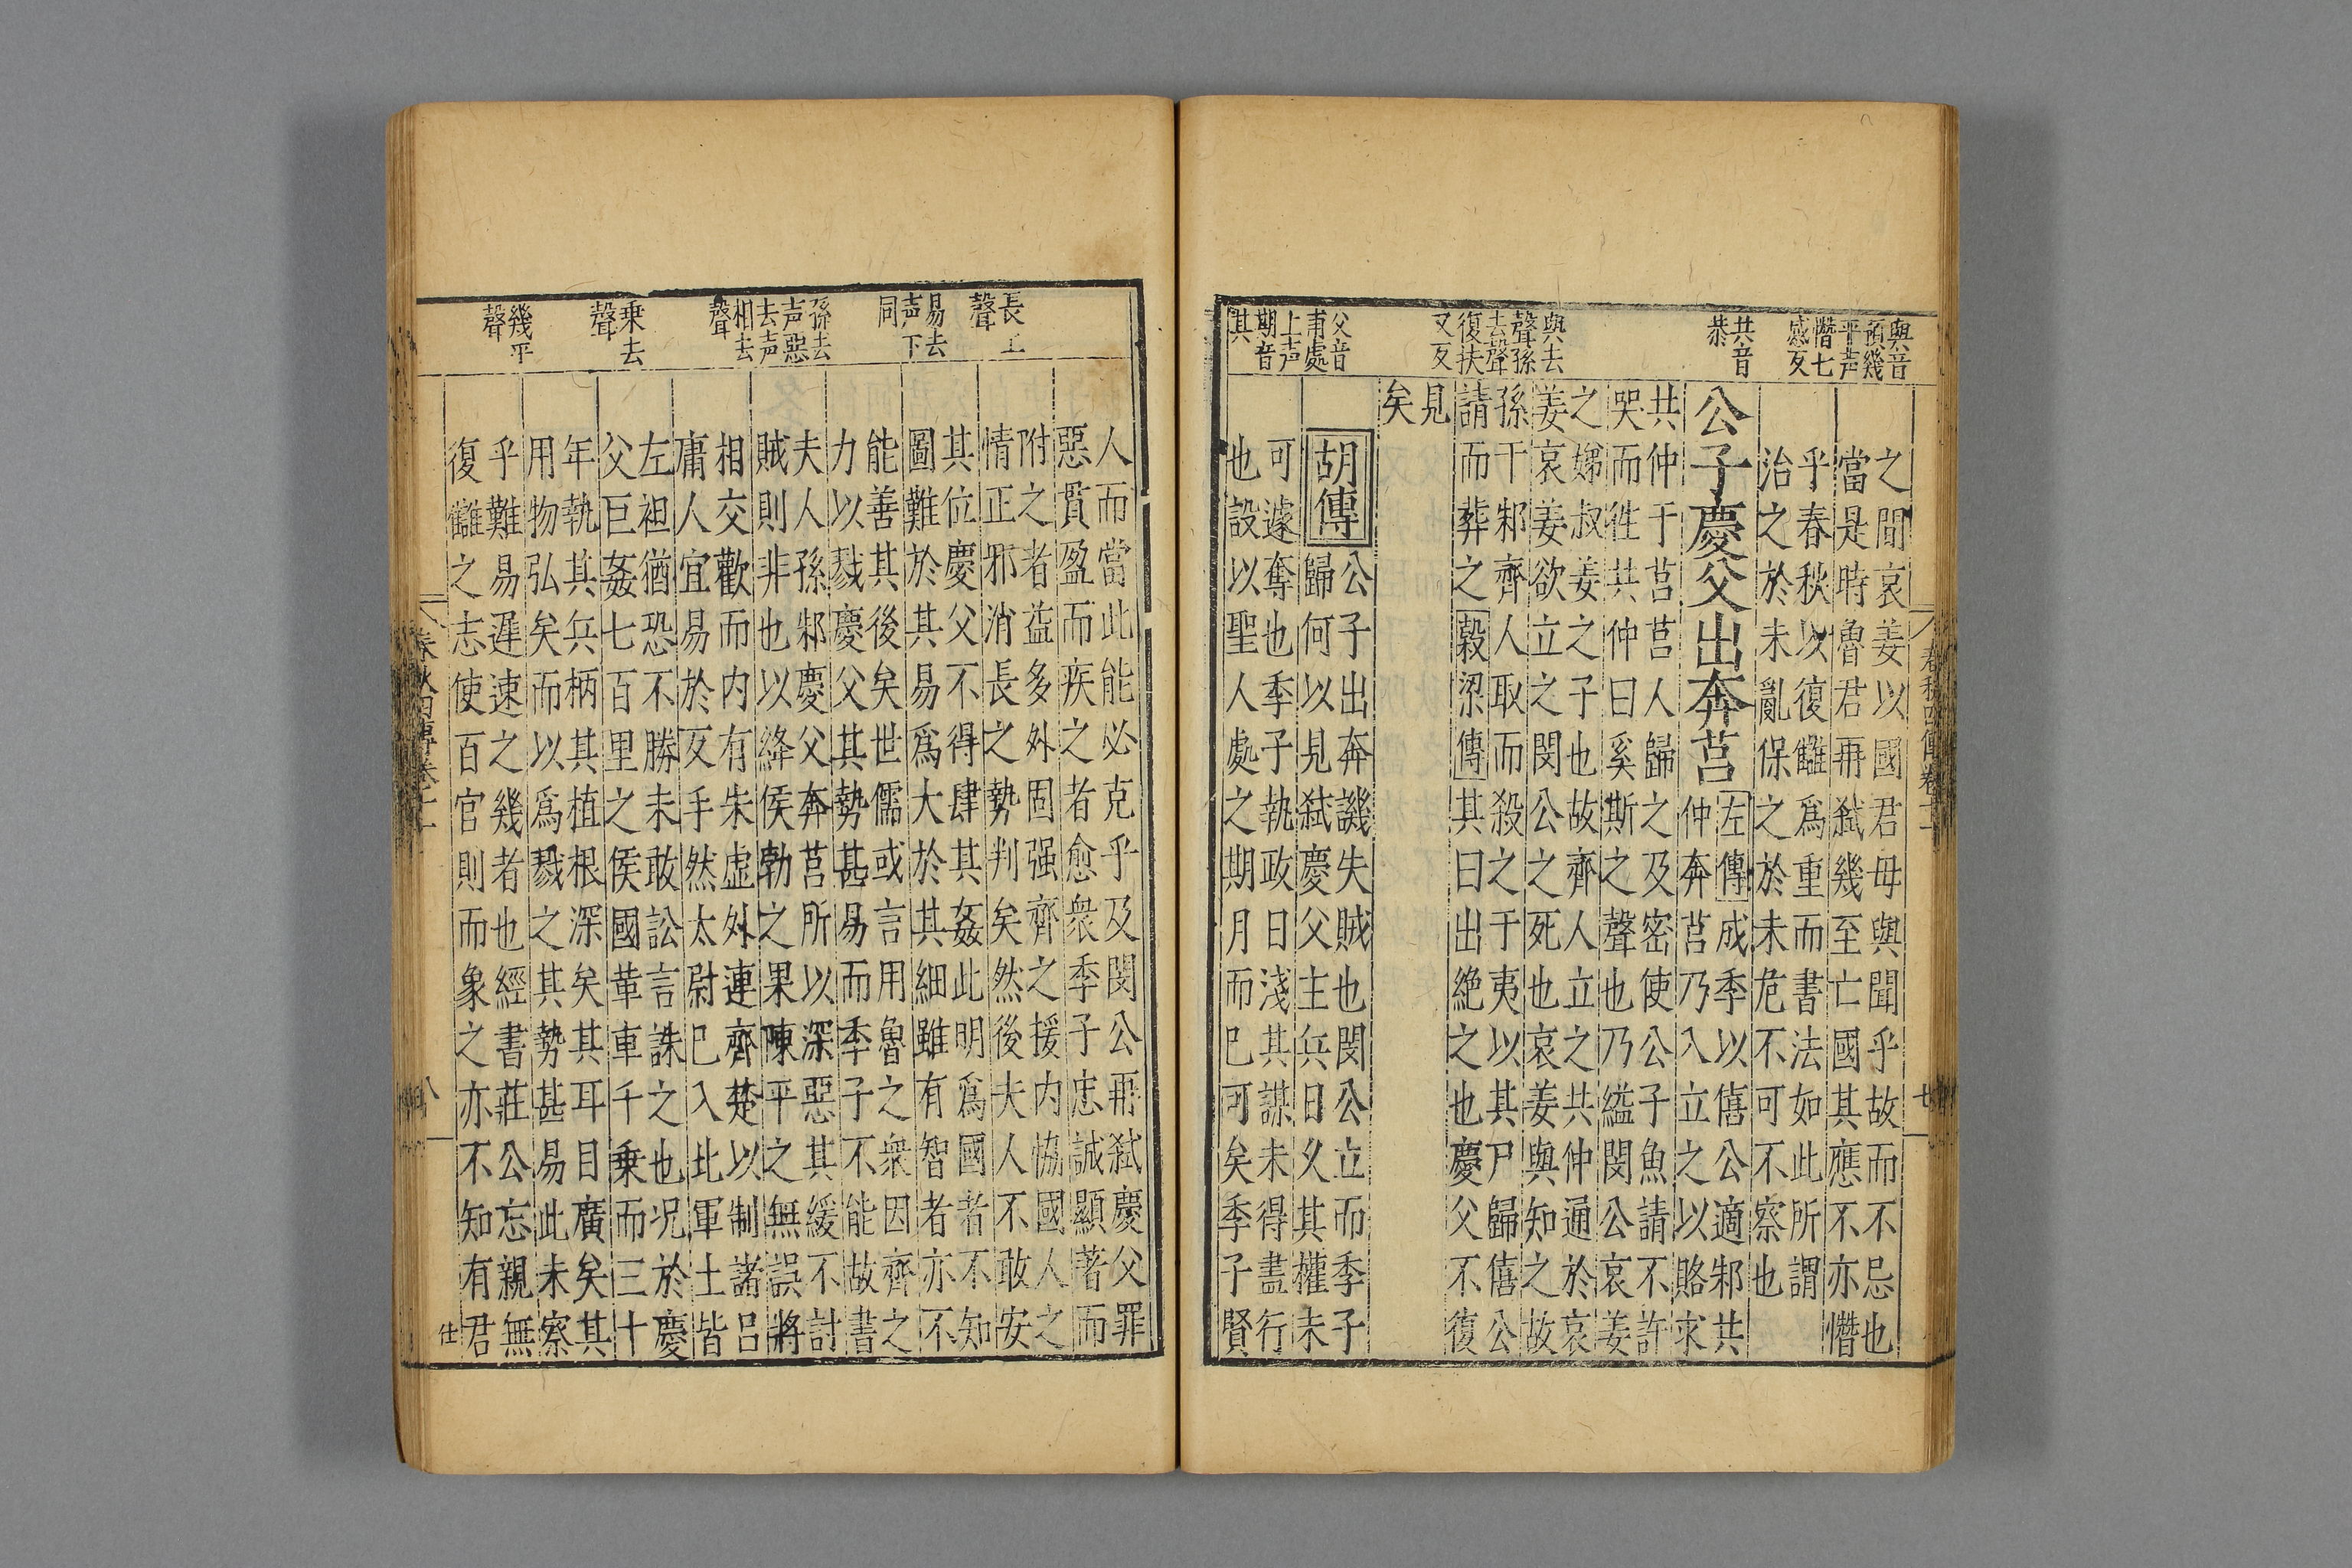 與音
預幾
平声
憯七
感反
共音
恭
與去
聲孫
去聲
復扶
又反
父音
甫處
上声
期音
其
之間哀姜以國君母與聞乎故而不忌也
當是時魯君再弒幾至亡國其應不亦憯
乎春秋以復讎爲重而書法如此所謂
治之於未亂保之於未危不可不察也
公子慶父出奔莒
左傳成季以僖公適邾共
仲奔莒乃入立之以賂求
共仲于莒莒人歸之及密使公子魚請不許
哭而徃共仲曰奚斯之聲也乃縊閔公哀姜
之娣叔姜之子也故齊人立之共仲通於哀
姜哀姜欲立之閔公之死也哀姜與知之故
孫于邾齊人取而殺之于夷以其尸歸僖公
請而葬之穀梁傳其曰出絶之也慶父不復
見
矣
胡傳
公子出奔譏失賊也閔公立而季子
歸何以見弒慶父主兵日久其權未
可遽奪也季子執政日淺其謀未得盡行
也設以聖人處之期月而已可矣季子賢
春秋四傳卷十一
七
長上
聲
易去
声下
同
孫去
声惡
去声
相去
聲
乗去
聲
幾平
聲
人而當此能必克乎及閔公再弒慶父罪
惡貫盈而疾之者愈衆季子忠誠顯著而
附之者益多外固强齊之援内恊國人之
情正邪消長之勢判矣然後夫人不敢安
其位慶父不得肆其姦此明爲國者不知
圖難於其易爲大於其細雖有智者亦不
能善其後矣世儒或言用魯之衆因齊之
力以戮慶父其勢甚易而季子不能故書
夫人孫邾慶父奔莒所以深惡其緩不討
賊則非也以絳侯勃之果陳平之無誤將
相交歡而内有朱虚外連齊楚以制諸呂
庸人宜易於反手然太尉已入北軍士皆
左袒猶恐不勝未敢訟言誅之也况於慶
父巨姦七百里之侯國革車千乗而三十
年執其兵柄其植根深矣其耳目廣矣其
用物弘矣而以爲戮之其勢甚易此未察
乎難易遲速之幾者也經書莊公忘親無
復讎之志使百官則而象之亦不知有君
春秋四傳卷十一
八
仕